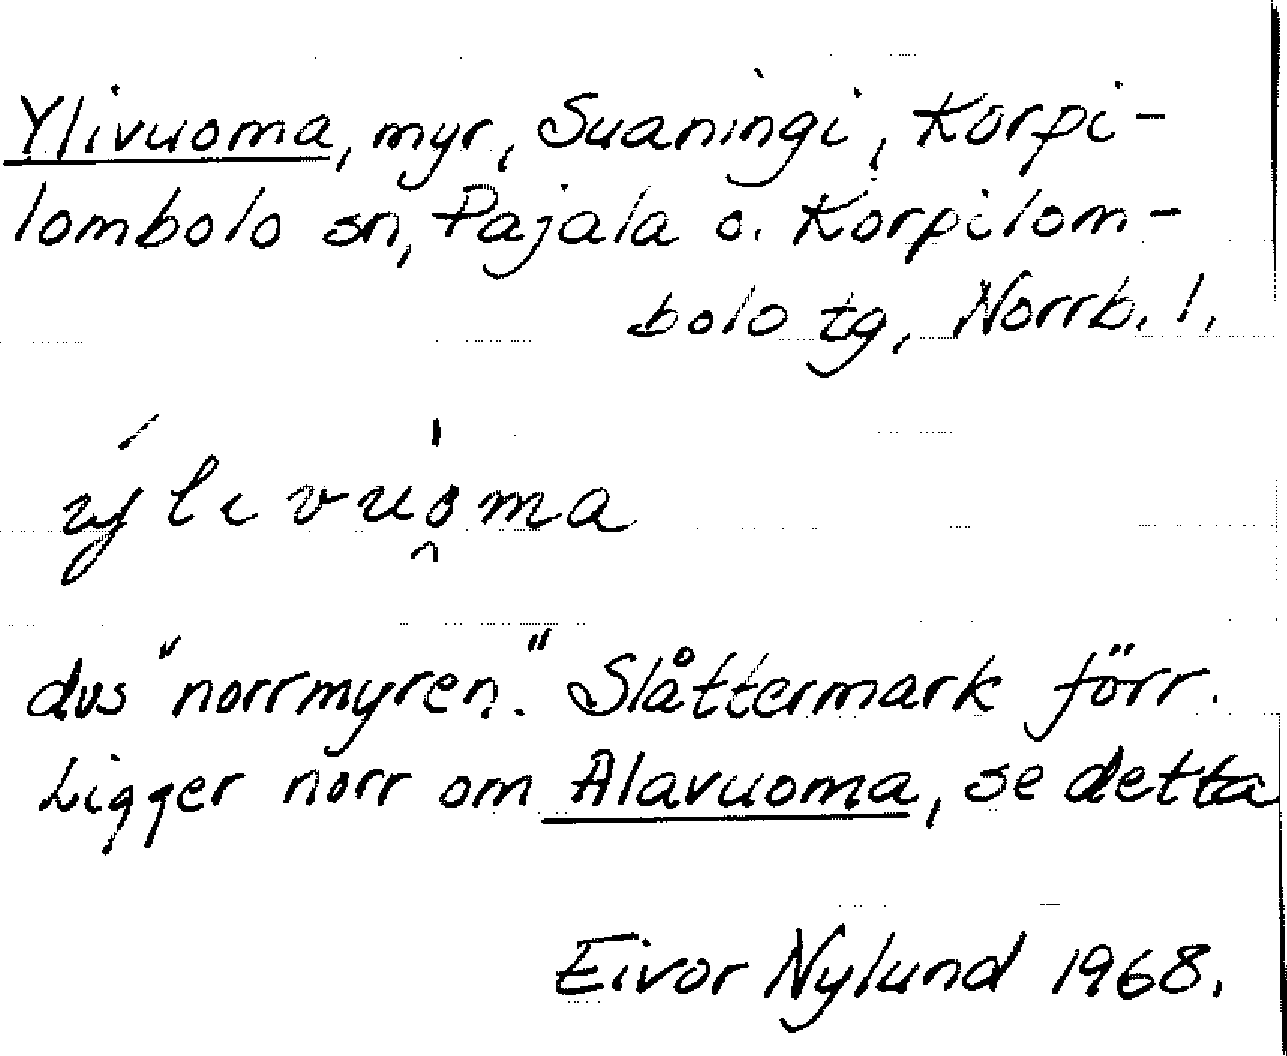 Ylivuoma, myr, Suaningi, Korpi-
lombolo sn, Pajala o. Korpilom-
bolo tg, Norrb. l.
ýlivuo̯ma
dvs "norrmyren." Slåttermark förr.
Ligger norr om Alavuoma, se detta
Eivor Nylund 1968.